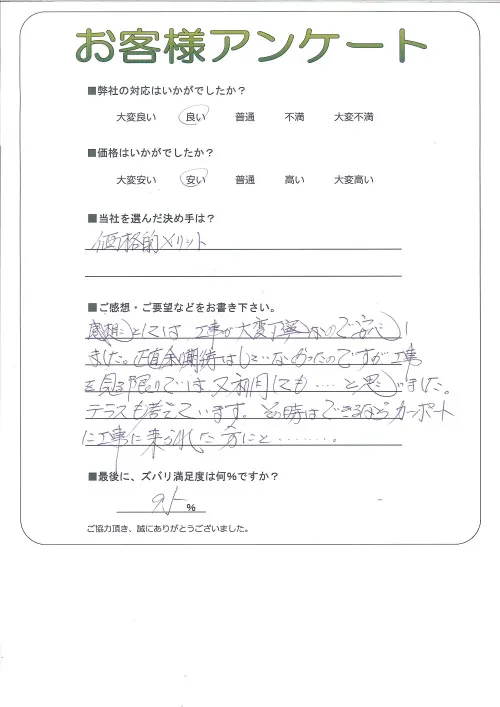 お客様アンケート
■弊社の対応はいかがでしたか？
大変良い 良い 普通 不満 大変不満
■価格はいかがでしたか？
大変安い 安い 普通 高い 大変高い
■当社を選んだ決め手は？
価格的メリット
■ご感想・ご要望などをお書き下さい。
感想としては 工事が大変丁寧なので安心し
ました。正直余り期待はしていなかったのですが工事
を見る限りでは又利用しても‥‥と思いました。
テラスも考えています。その時はできるならカーポート
に工事に来られた方にと‥‥‥。
■最後に、ズバリ満足度は何%ですか？
95 %
ご協力頂き、誠にありがとうございました。